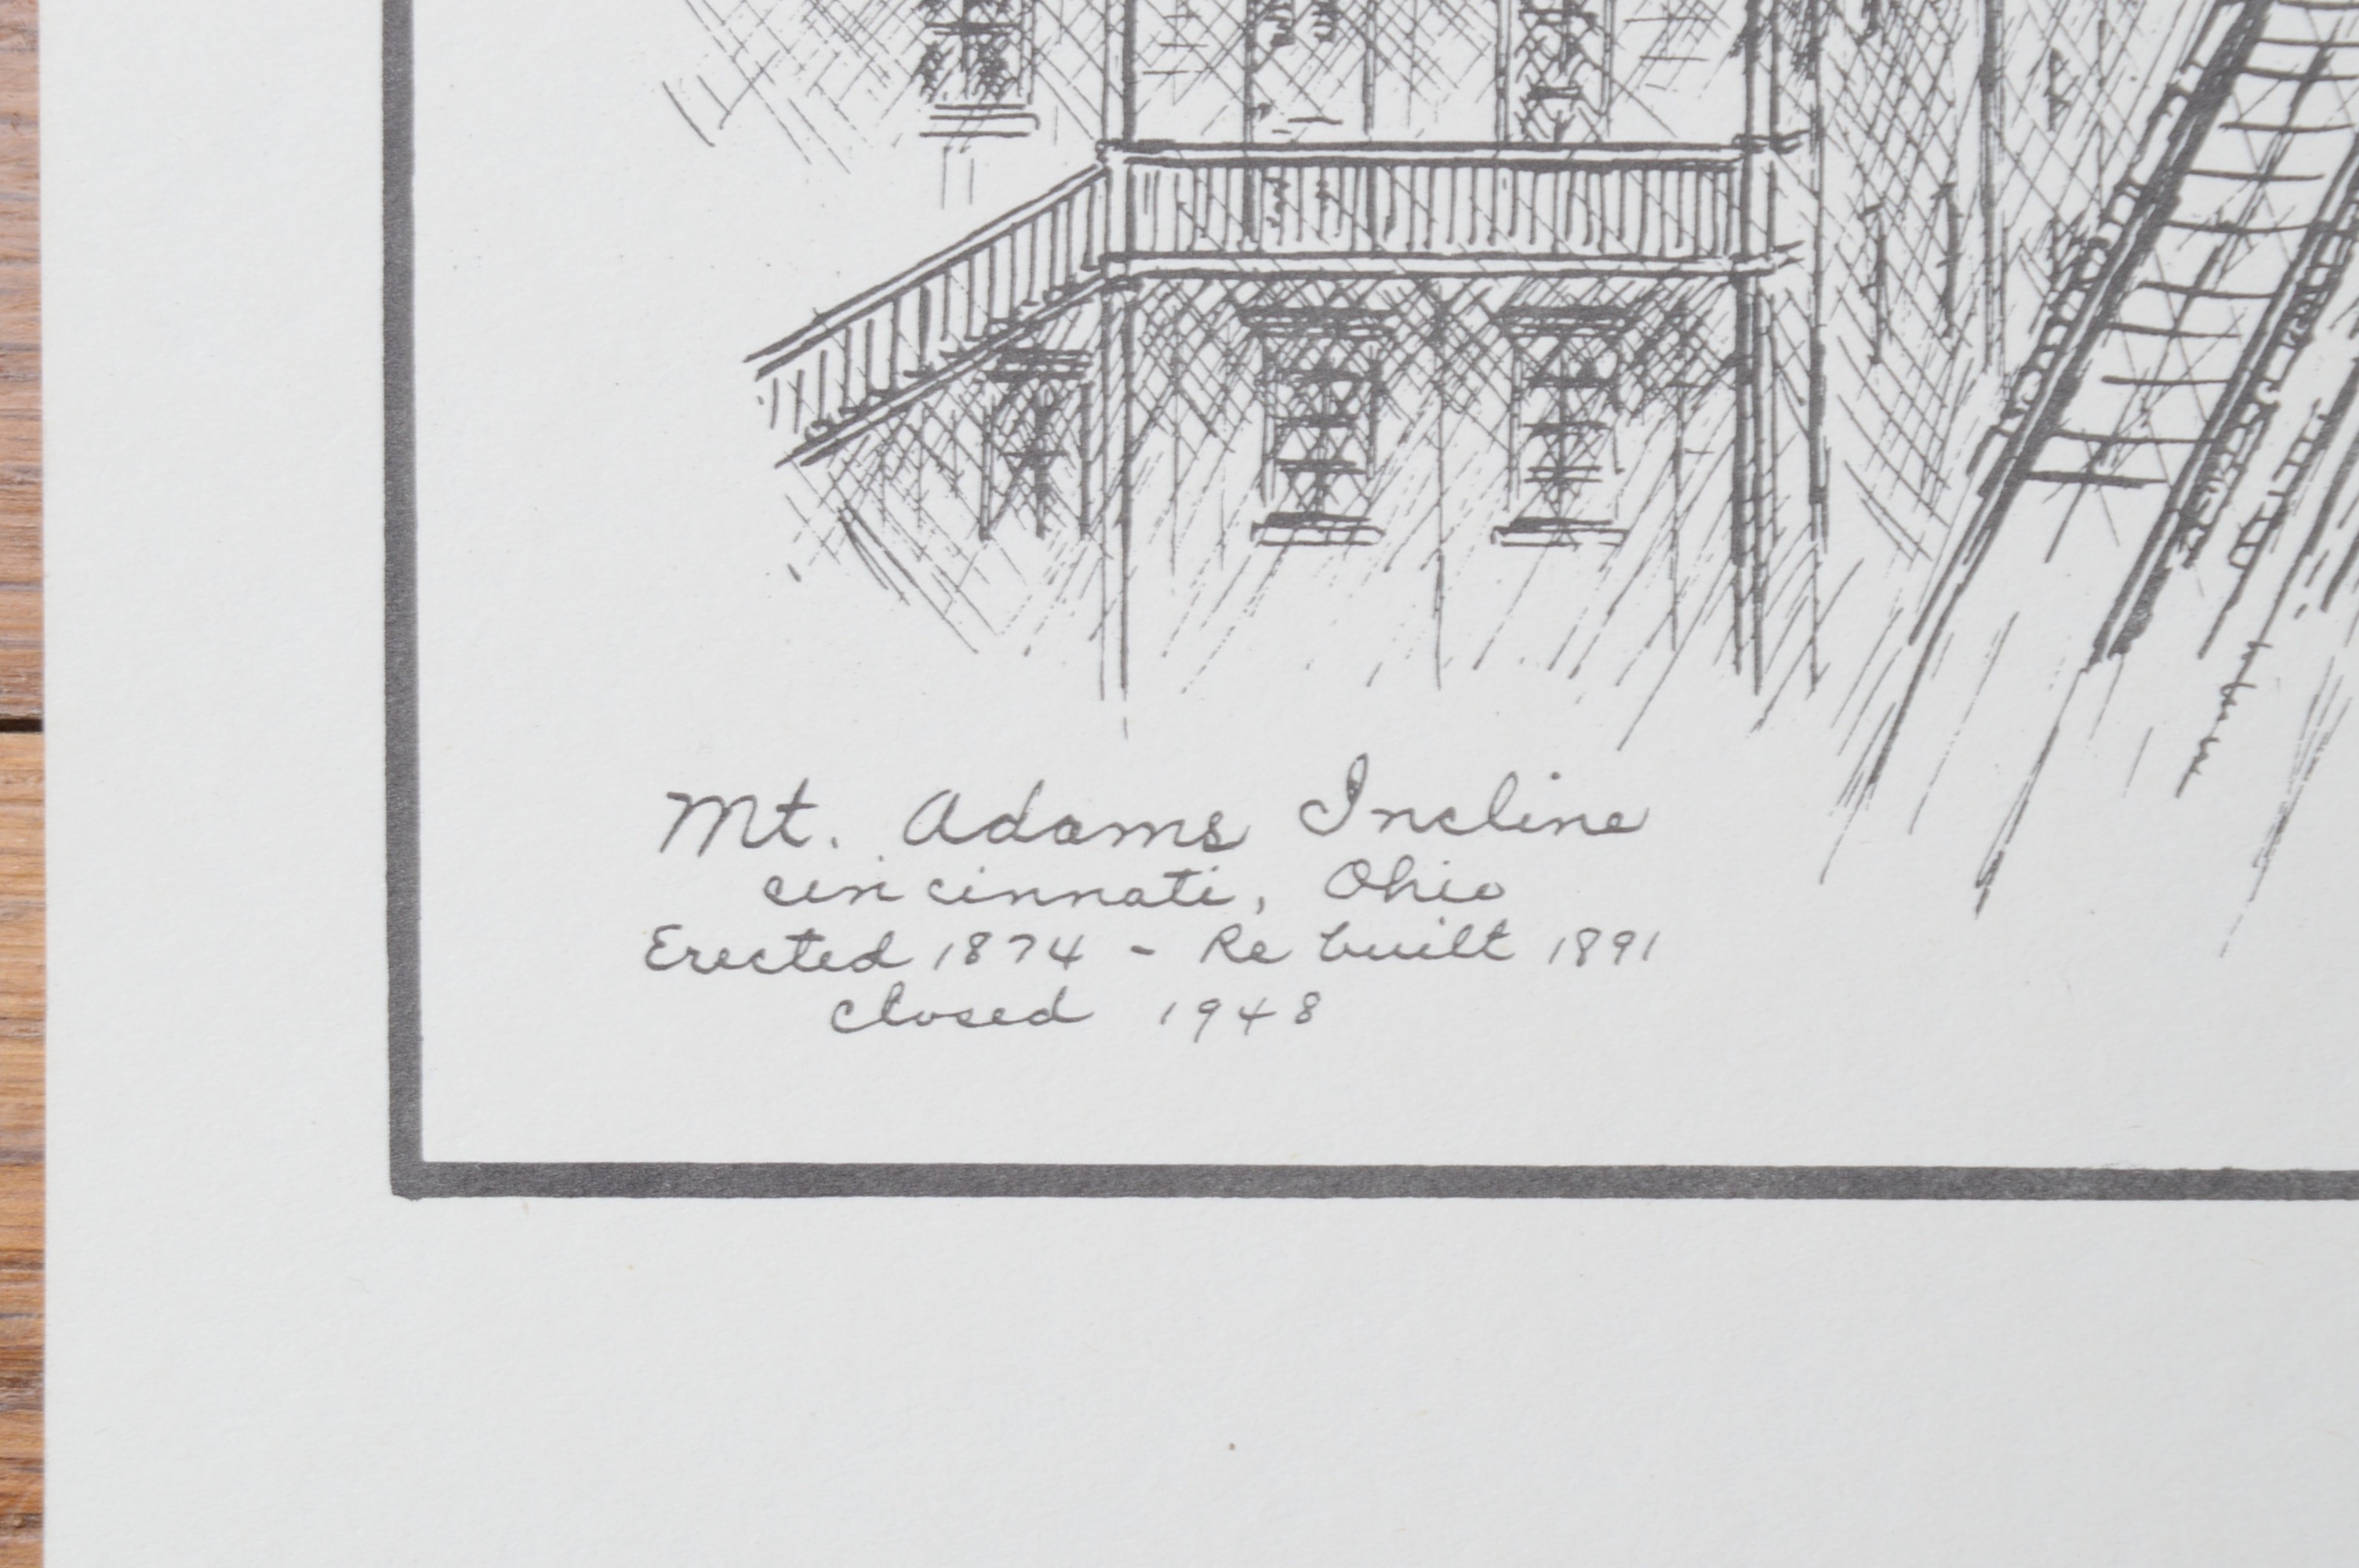 Mt. Adams Incline
cincinnati, Ohio
Erected 1874 - Re built 1891
closed 1948